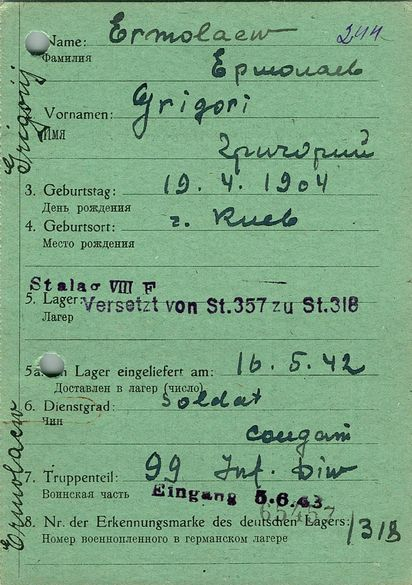 Name: Ermolaew 244
Фамилия Ермолаев
Grigorij
Vornamen: Grigori
Имя Григорий
3. Geburtstag: 19. 4. 1904
День рождения
4. Geburtsort: г. Киев
Место рождения
Stalag VIII F
5. Lager: Versetzt von St.357 zu St.318
Лагер
5a. Im Lager eingeliefert am: 16. 5. 42
Доставлен в лагер (число)
6. Dienstgrad: Soldat
Чин солдат
7. Truppenteil: 99 Inf. Diw
Воинская часть Eingang 5.6.43
Ermolaew
8. Nr. der Erkennungsmarke des deutschen Lagers: /318
Номер военнопленного в германском лагере